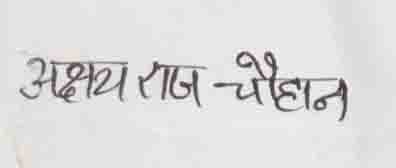 अक्षय राज चौहान